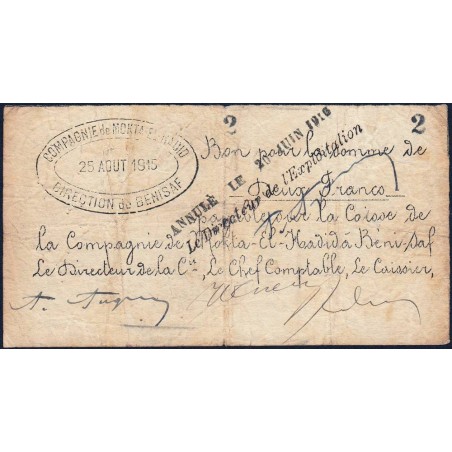 COMPAGNIE de MOKTA-EL-HADID
25 AOUT 1915
DIRECTION de BENISAF
2 2
Bon pour la Somme de
Deux Francs
payable par la Caisse de
la Compagnie de Mokta-El-Hadid à Béni-Saf
Le Directeur de la Cie, Le Chef Comptable, Le Caissier,
ANNULÉ LE JUIN 1916
Le Directeur de l'Exploitation